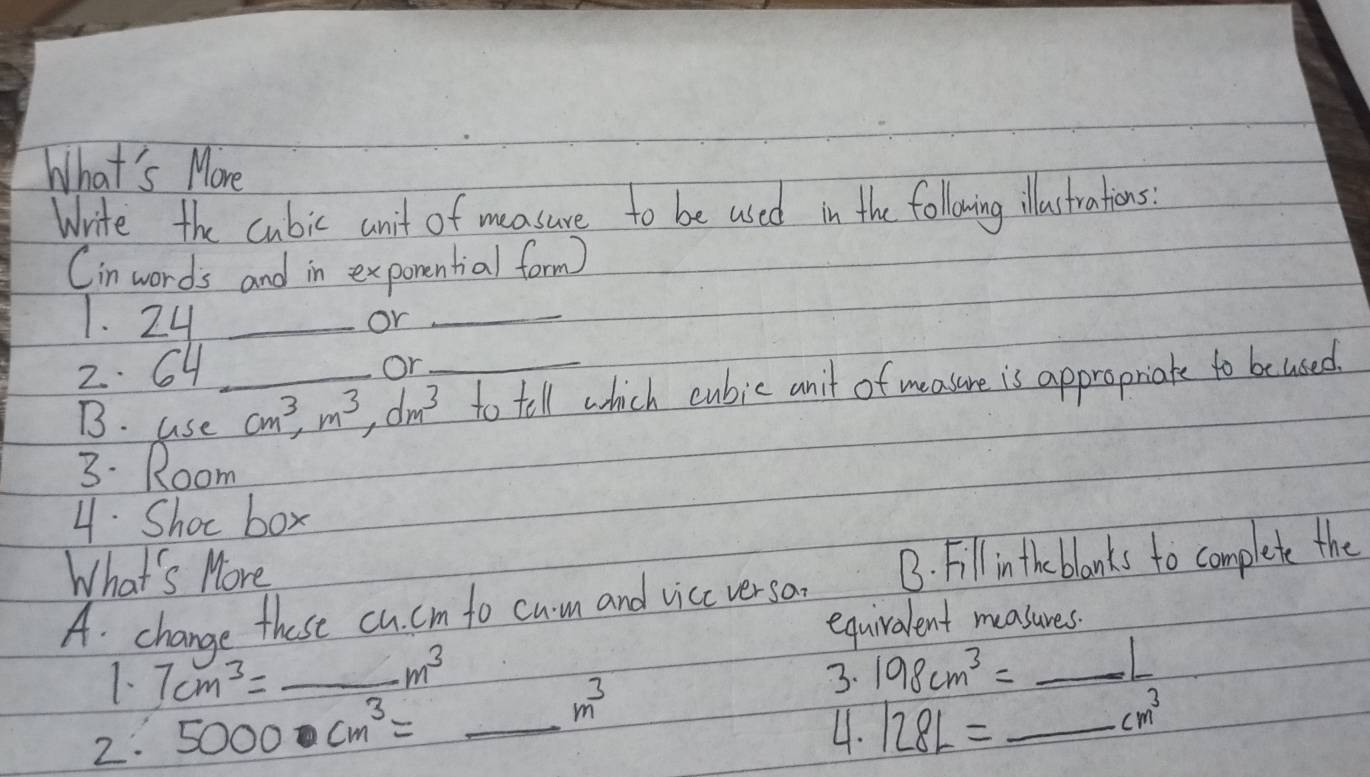 What's More
Write the cubic unit of measure to be used in the following illustrations:
(in words and in exponential form)
1. 24 ______ or ______
2. 64 ______ or ______
B. use cm³, m³, dm³ to tell which cubic unit of measure is appropriate to be used.
3. Room
4. Shoe box
What's More
A. change these cu.cm to cu.m and vice versa.
1. 7cm³ = ______ m³
2. 5000 cm³ = ______ m³
B. Fill in the blanks to complete the
equivalent measures.
3. 198cm³ = ______ L
4. 128L = ______ cm³